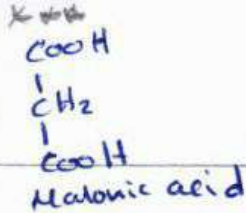 COOH
|
CH2
|
COOH
Malonic acid